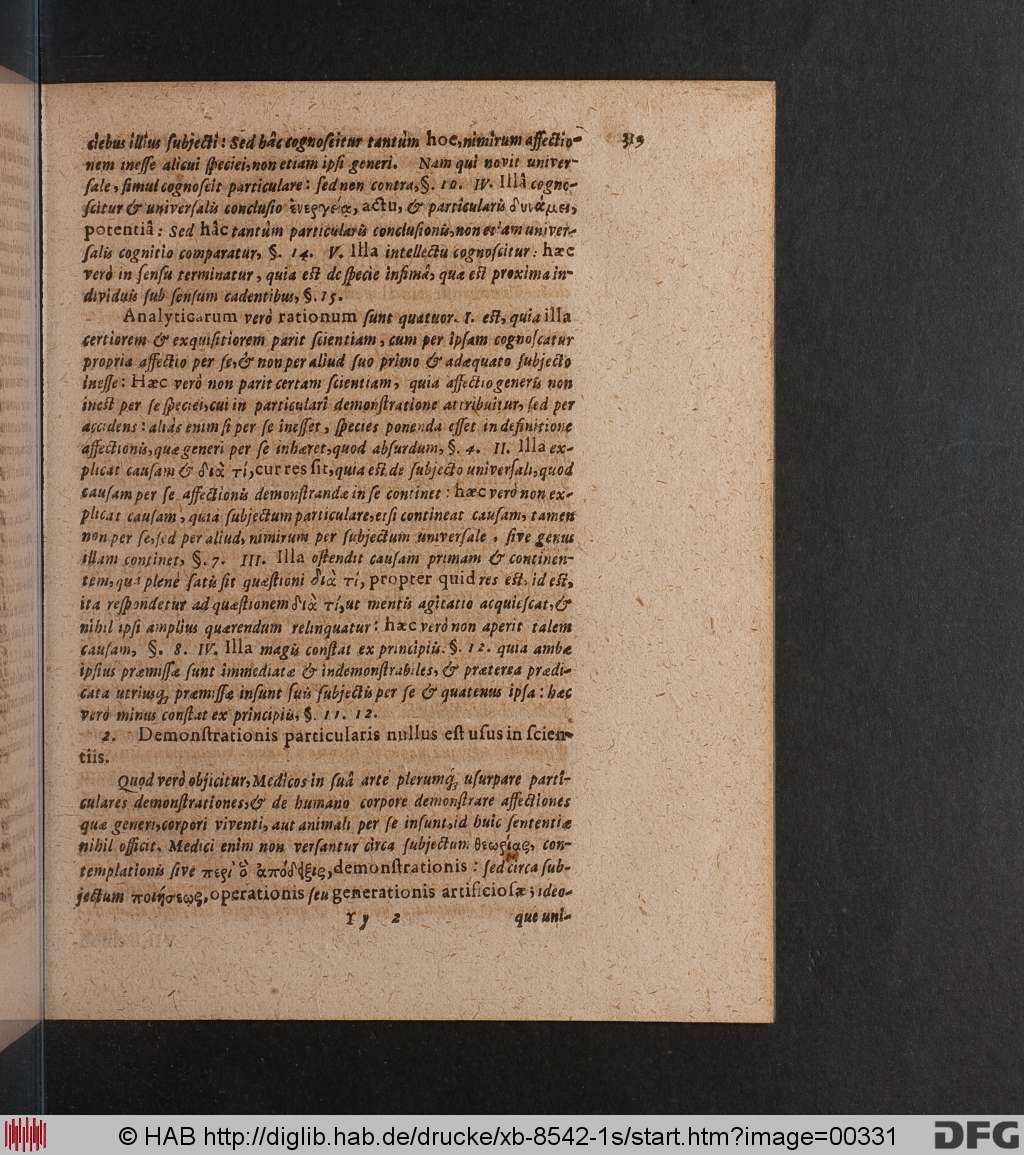 319
ciebus illius ſubjecti: Sed hâc cognoſcitur tantùm hoc, nimirum affectio-
nem ineſſe alicui ſpeciei, non etiam ipſi generi. Nam qui novit univer-
ſale, ſimul cognoſcit particulare: ſed non contra, §. 10. IV. Illâ cogno-
ſcitur & univerſalis concluſio ἐνεργείᾳ, actu, & particularis δυνάμει,
potentiâ: Sed hâc tantùm particularis concluſionis, non etiam univer-
ſalis cognitio comparatur, §. 14. V. Illa intellectu cognoſcitur: hæc
verò in ſenſu terminatur, quia eſt de ſpecie infimâ, quæ eſt proxima in-
dividuis ſub ſenſum cadentibus, §. 15.
Analyticarum verò rationum ſunt quatuor. I. eſt, quia illa
certiorem & exquiſitiorem parit ſcientiam, cum per ipſam cognoſcatur
propria affectio per ſe, & non per aliud ſuo primo & adæquato ſubjecto
ineſſe: Hæc verò non parit certam ſcientiam, quia affectio generis non
ineſt per ſe ſpeciei, cui in particulari demonſtratione attribuitur, ſed per
accidens: aliàs enim ſi per ſe ineſſet, ſpecies ponenda eſſet in definitione
affectionis, quæ generi per ſe inhæret, quod abſurdum, §. 4. II. Illa ex-
plicat cauſam & διὰ τί, cur res ſit, quia eſt de ſubjecto univerſali, quod
cauſam per ſe affectionis demonſtrandæ in ſe continet: hæc verò non ex-
plicat cauſam, quia ſubjectum particulare, etſi contineat cauſam, tamen
non per ſe, ſed per aliud, nimirum per ſubjectum univerſale, ſive genus
illam continet, §. 7. III. Illa oſtendit cauſam primam & continen-
tem, quâ plenè ſatis fit quæſtioni διὰ τί, propter quid res eſt, id eſt,
ita reſpondetur ad quæſtionem διὰ τί, ut mentis agitatio acquieſcat, &
nihil ipſi amplius quærendum relinquatur: hæc verò non aperit talem
cauſam, §. 8. IV. Illa magis conſtat ex principiis. §. 12. quia ambæ
ipſius præmiſſæ ſunt immediatæ & indemonſtrabiles, & præterea prædi-
cata utriusq; præmiſſæ inſunt ſuis ſubjectis per ſe & quatenus ipſa: hæc
verò minus conſtat ex principiis, §. 11. 12.
2. Demonſtrationis particularis nullus eſt uſus in ſcien-
tiis.
Quod verò objicitur, Medicos in ſuâ arte plerumq; uſurpare parti-
culares demonſtrationes, & de humano corpore demonſtrare affectiones
quæ generi, corpori viventi, aut animali per ſe inſunt, id huic ſententiæ
nihil officit. Medici enim non verſantur circa ſubjectum θεωρίας, con-
templationis ſive περὶ ὃ ἀπόδειξις, demonſtrationis: ſed circa ſub-
jectum ποιήσεως, operationis ſeu generationis artificioſæ; ideo-
Yy 2 que uni-
© HAB http://diglib.hab.de/drucke/xb-8542-1s/start.htm?image=00331
DFG